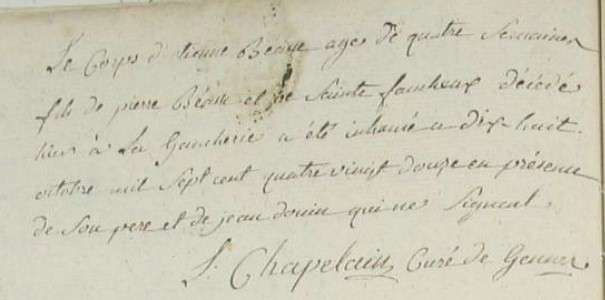 Le Corps d'étienne Beasse agé de quatre Semaines
fils de pierre Béasse et de Sainte fauheux décédé
hier à La Gaucherie a été inhumé ce dix huit
octobre mil Sept cent quatre vingt douze en présence
de Son pere et de jean douin qui ne Signent
L. Chapelain Curé de Gennes